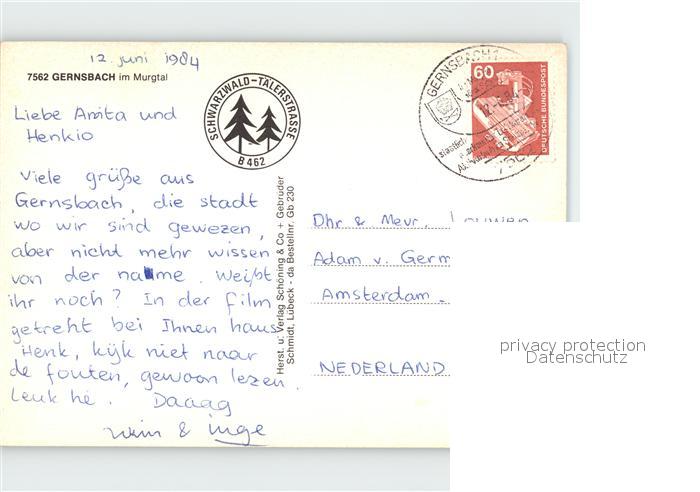 12. juni 1984
7562 GERNSBACH im Murgtal
SCHWARZWALD-TÄLERSTRASSE
B 462
Liebe Anita und
Henkio
Viele grüße aus
Gernsbach, die stadt
wo wir sind gewezen,
aber nicht mehr wissen
von der name. Weißt
ihr noch? In der film
getreht bei Ihnen haus.
Henk, kijk niet naar
de fouten, gewoon lezen.
Leuk hè. Daaag
Wim & Inge
Herst. u. Verlag Schöning & Co + Gebrüder
Schmidt, Lübeck - da Bestellnr. Gb 230
GERNSBACH 1
60
DEUTSCHE BUNDESPOST
Dhr & Mevr. Leuwen
Adam v. Germ
Amsterdam.
NEDERLAND
privacy protection
Datenschutz